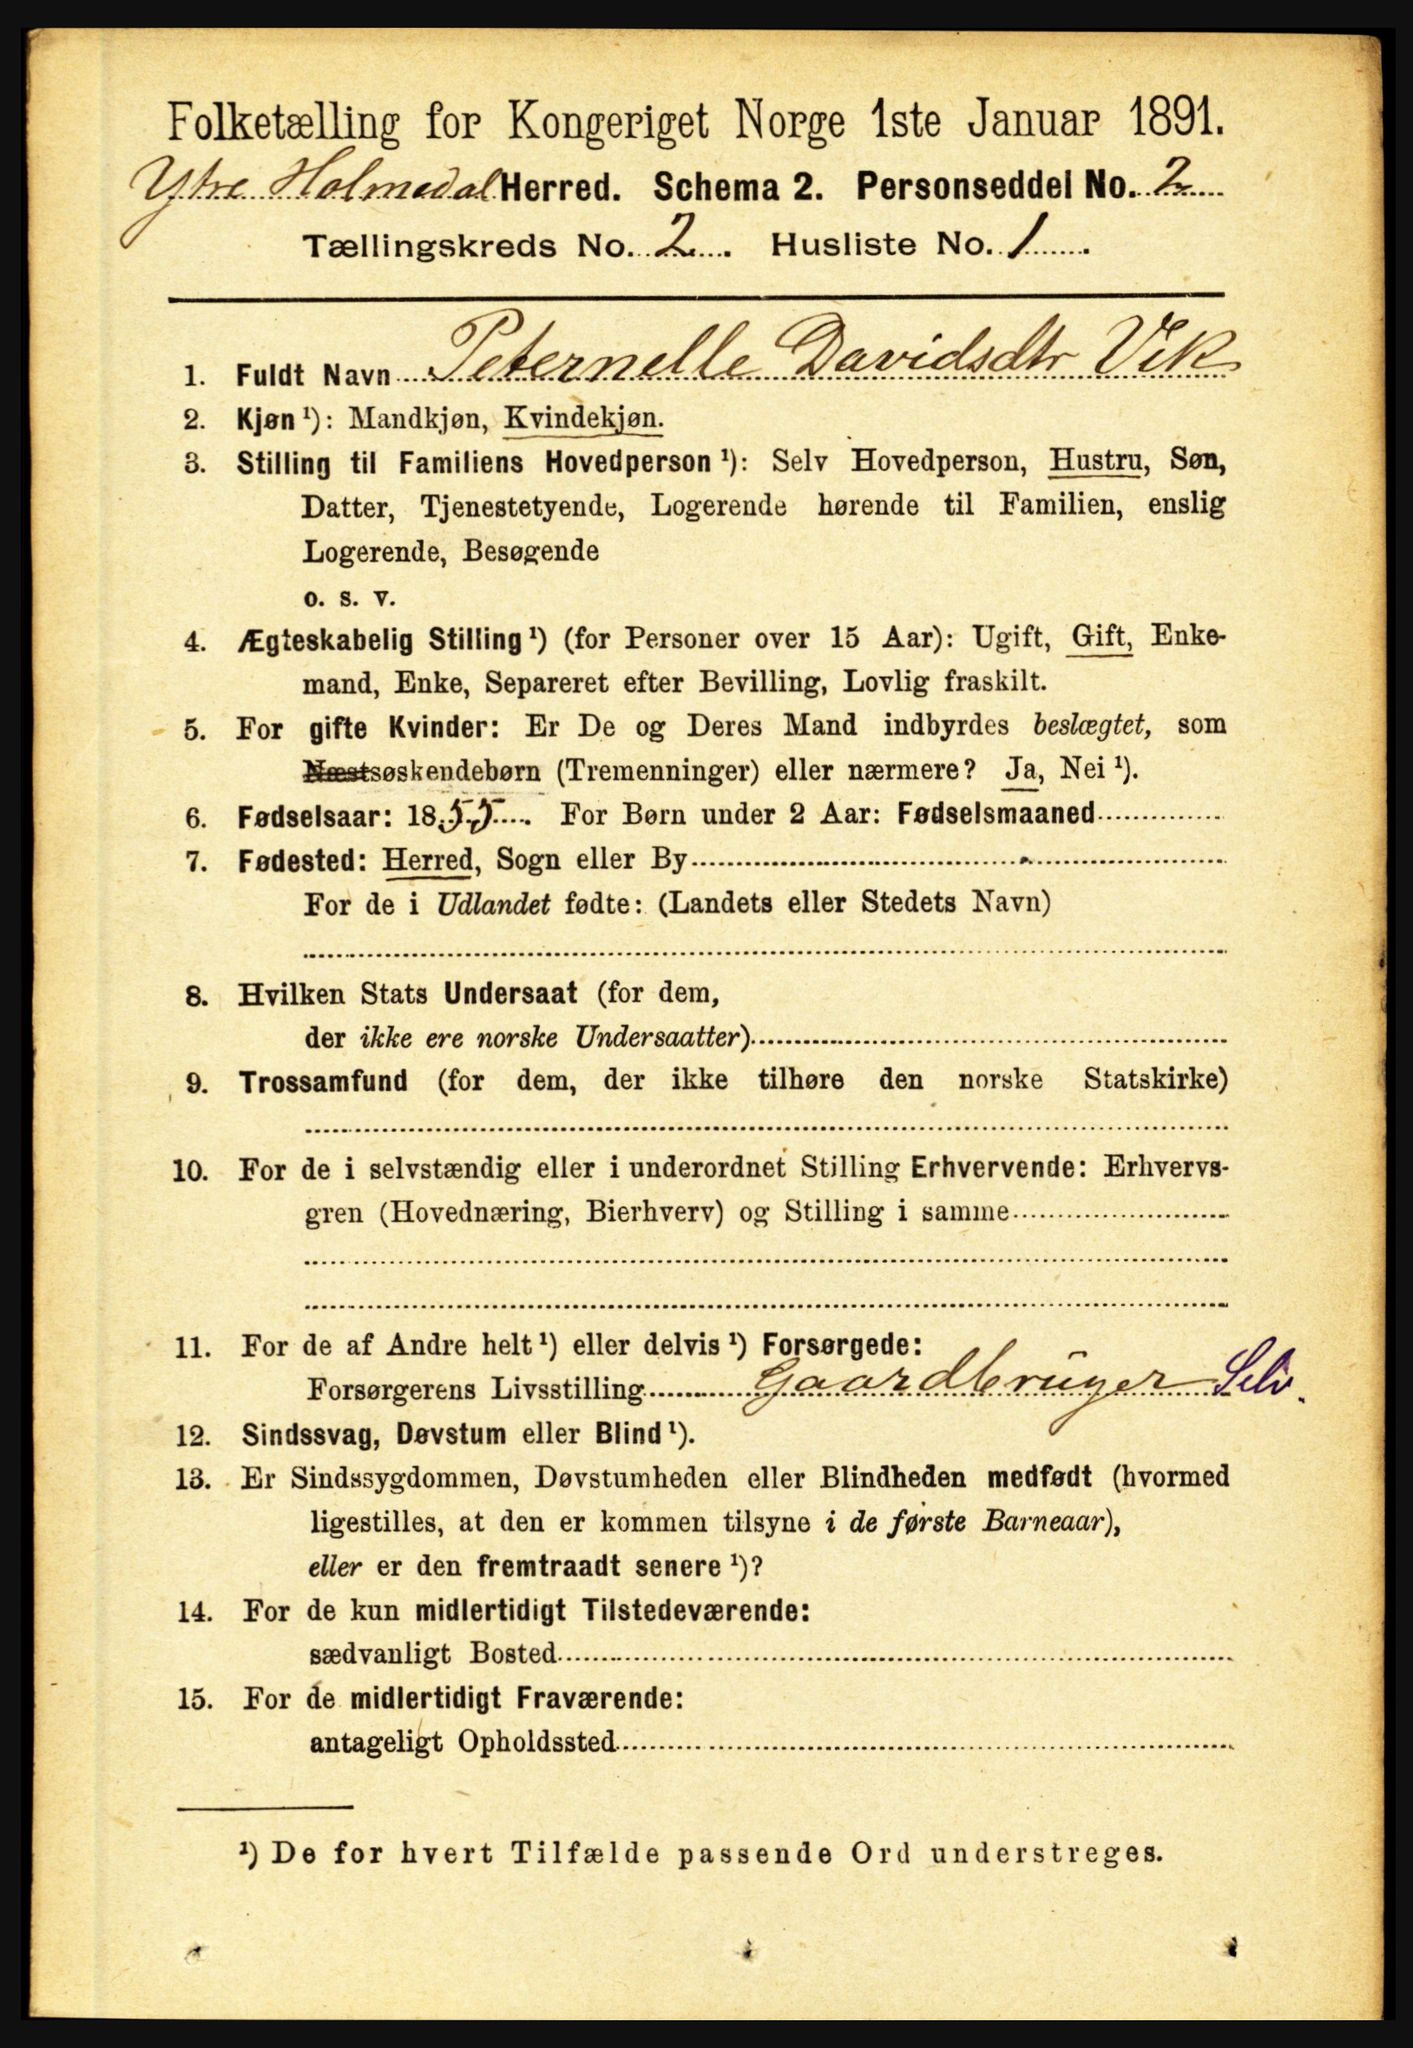 Folketælling for Kongeriget Norge 1ste Januar 1891.
Ytre Holmedal Herred. Schema 2. Personseddel No. 2
Tællingskreds No. 2. Husliste No. 1.
1. Fuldt Navn Peternelle Davidsdtr Vik
2. Kjøn ¹): Mandkjøn, Kvindekjøn.
3. Stilling til Familiens Hovedperson ¹): Selv Hovedperson, Hustru, Søn,
Datter, Tjenestetyende, Logerende hørende til Familien, enslig
Logerende, Besøgende
o. s. v.
4. Ægteskabelig Stilling ¹) (for Personer over 15 Aar): Ugift, Gift, Enke-
mand, Enke, Separeret efter Bevilling, Lovlig fraskilt.
5. For gifte Kvinder: Er De og Deres Mand indbyrdes beslægtet, som
Næstsøskendebørn (Tremenninger) eller nærmere? Ja, Nei ¹).
6. Fødselsaar: 1855. For Børn under 2 Aar: Fødselsmaaned
7. Fødested: Herred, Sogn eller By
For de i Udlandet fødte: (Landets eller Stedets Navn)
8. Hvilken Stats Undersaat (for dem,
der ikke ere norske Undersaatter)
9. Trossamfund (for dem, der ikke tilhøre den norske Statskirke)
10. For de i selvstændig eller i underordnet Stilling Erhvervende: Erhvervs-
gren (Hovednæring, Bierhverv) og Stilling i samme
11. For de af Andre helt ¹) eller delvis ¹) Forsørgede:
Forsørgerens Livsstilling Gaardbruger Selv.
12. Sindssvag, Døvstum eller Blind ¹).
13. Er Sindssygdommen, Døvstumheden eller Blindheden medfødt (hvormed
ligestilles, at den er kommen tilsyne i de første Barneaar),
eller er den fremtraadt senere ¹)?
14. For de kun midlertidigt Tilstedeværende:
sædvanligt Bosted
15. For de midlertidigt Fraværende:
antageligt Opholdssted
¹) De for hvert Tilfælde passende Ord understreges.